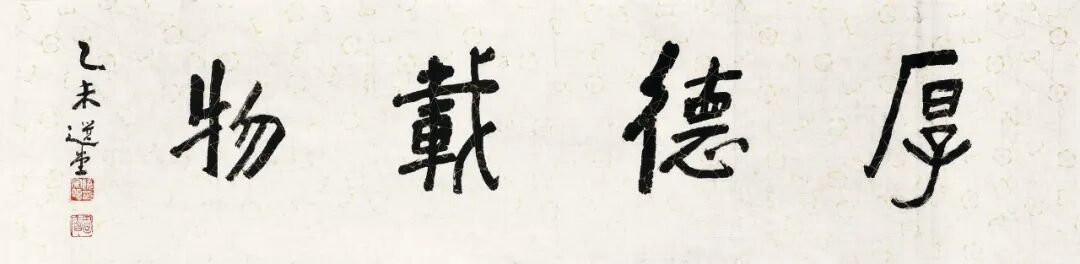 厚德載物
乙未選堂